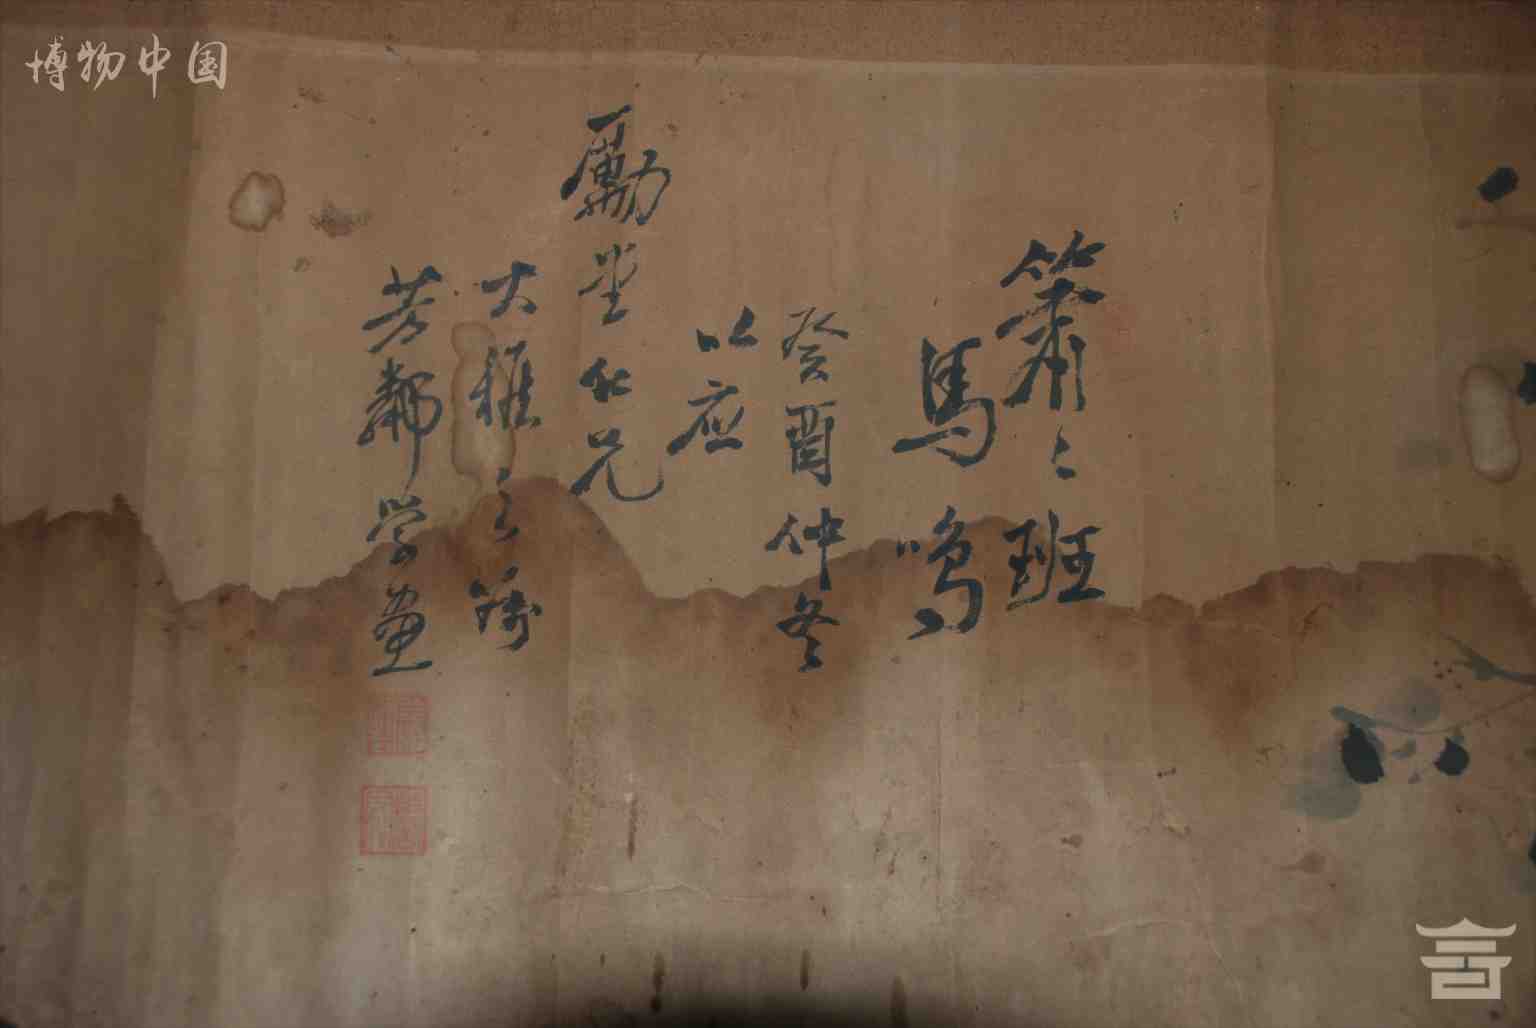 博物中国
簫〻班
馬鳴
癸酉仲冬
以应
勵堂仁兄
大雅之
芳鄰学畫